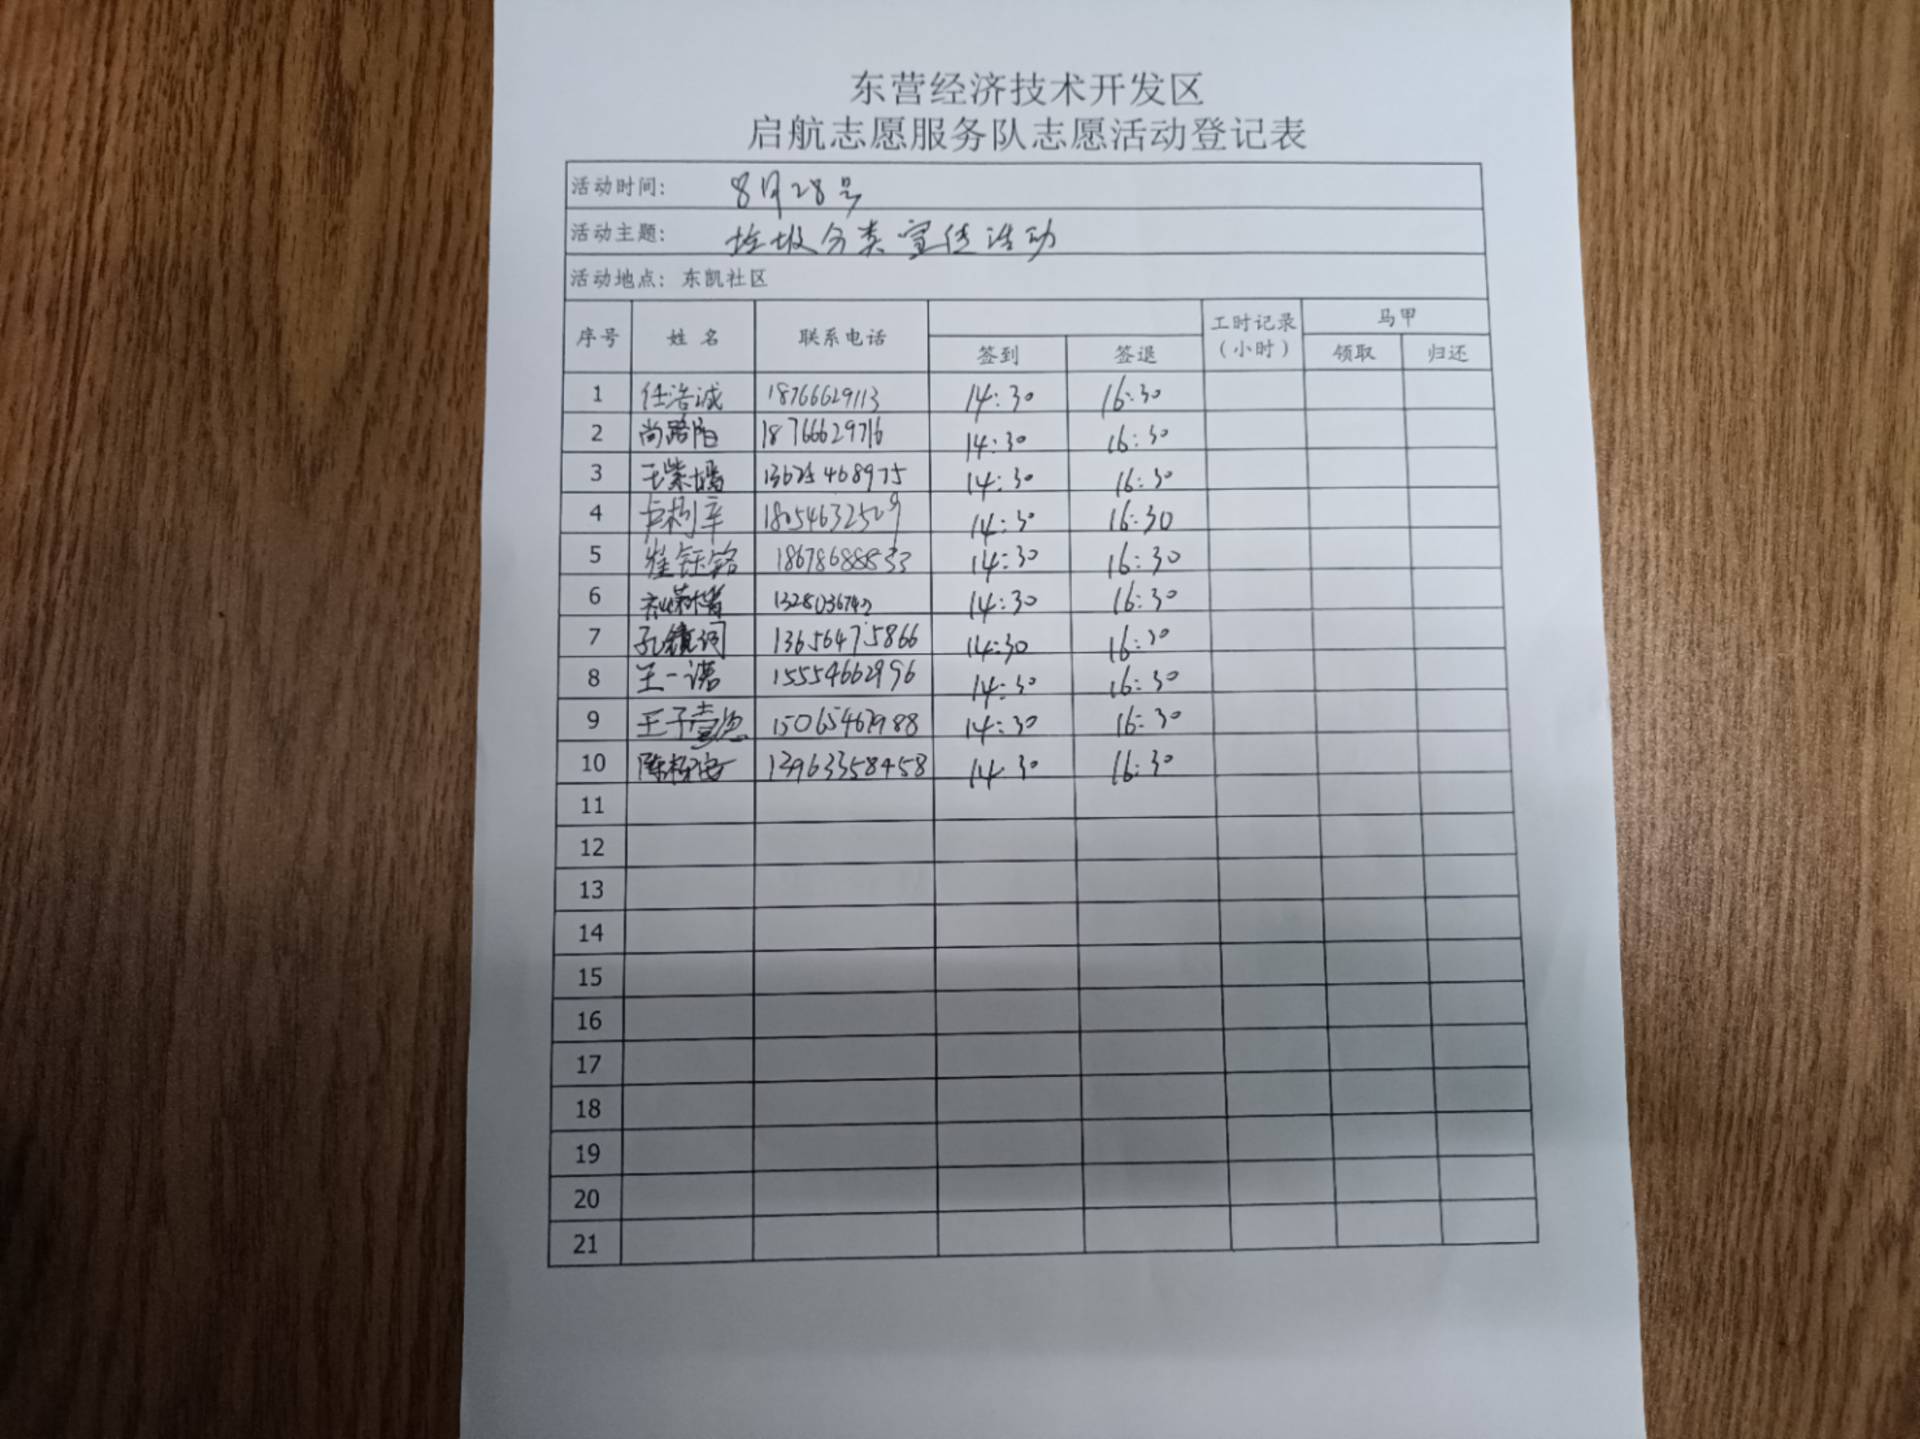 东营经济技术开发区
启航志愿服务队志愿活动登记表
活动时间: 8月28号
活动主题: 垃圾分类宣传活动
活动地点: 东凯社区
序号 姓名 联系电话 签到 签退 工时记录(小时) 马甲 领取 归还
1 任浩诚 18766629113 14:30 16:30
2 尚路阳 18766629716 14:30 16:30
3 王紫 13675468975 14:30 16:30
4 14:30 16:30
5 崔钰铭 18678688833 14:30 16:30
6 14:30 16:30
7 孔镜词 13656475866 14:30 16:30
8 王一诺 15554662996 14:30 16:30
9 王子壹 14:30 16:30
10 陈 13963358458 14:30 16:30
11
12
13
14
15
16
17
18
19
20
21